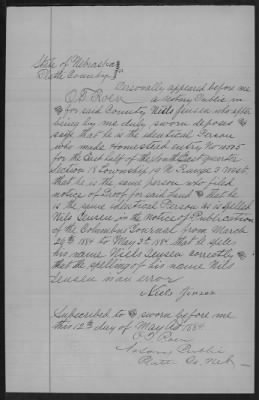 State of Nebraska
Platte County
Personally appeared before me
a Notary Public in
& for said County Nills Jensen who after
being by me duly sworn deposes
& says that he is the identical Person
who made homestead entry No
for the East half of the South East quarter
Section 18 Township 19 N Range 3 West
that he is the same person who filed
notice of Proof on said Land & that he
is the same identical Person as is spelled
Nils Jensen in the Notice of Publication
of the Columbus Journal from March
29th 1884 to May 3d 1884 that he spells
his name Nills Jensen correctly &
that the spelling of his name Nils
Jensen is an error
Niels Jensen
Subscribed to & sworn before me
this 12th day of May AD 1884
Notary Public
Platte Co. Neb